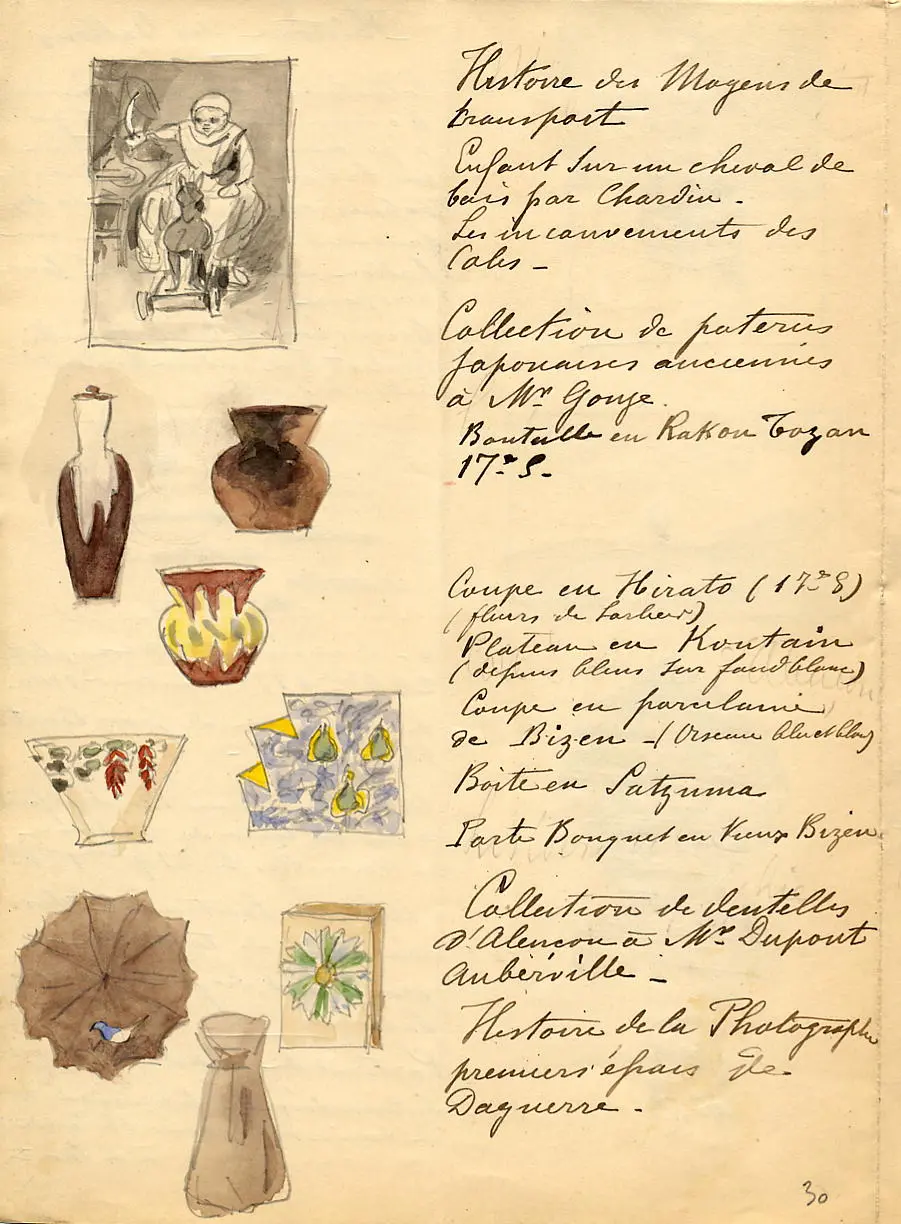 Histoire des Moyens de
transport
Enfant sur un cheval de
bois par Chardin -
Les inconvements des
Coles -
Collection de poteries
Japonaises anciennes
à Mr Gonse.
Bouteille en Rakou Tozan
17e S.
Coupe en Hirato (17e S)
(fleurs de
Plateau en Koutain
(dessins bleus sur fond blanc)
Coupe en porcelaine
de Bizen - (Oiseau bleu et blanc)
Boite en Satzuma
Porte Bouquet en Vieux Bizen
Collection de dentelles
d'Alencon à Mr Dupont
Auberville -
Histoire de la Photographie
premiers essais de
Daguerre -
30